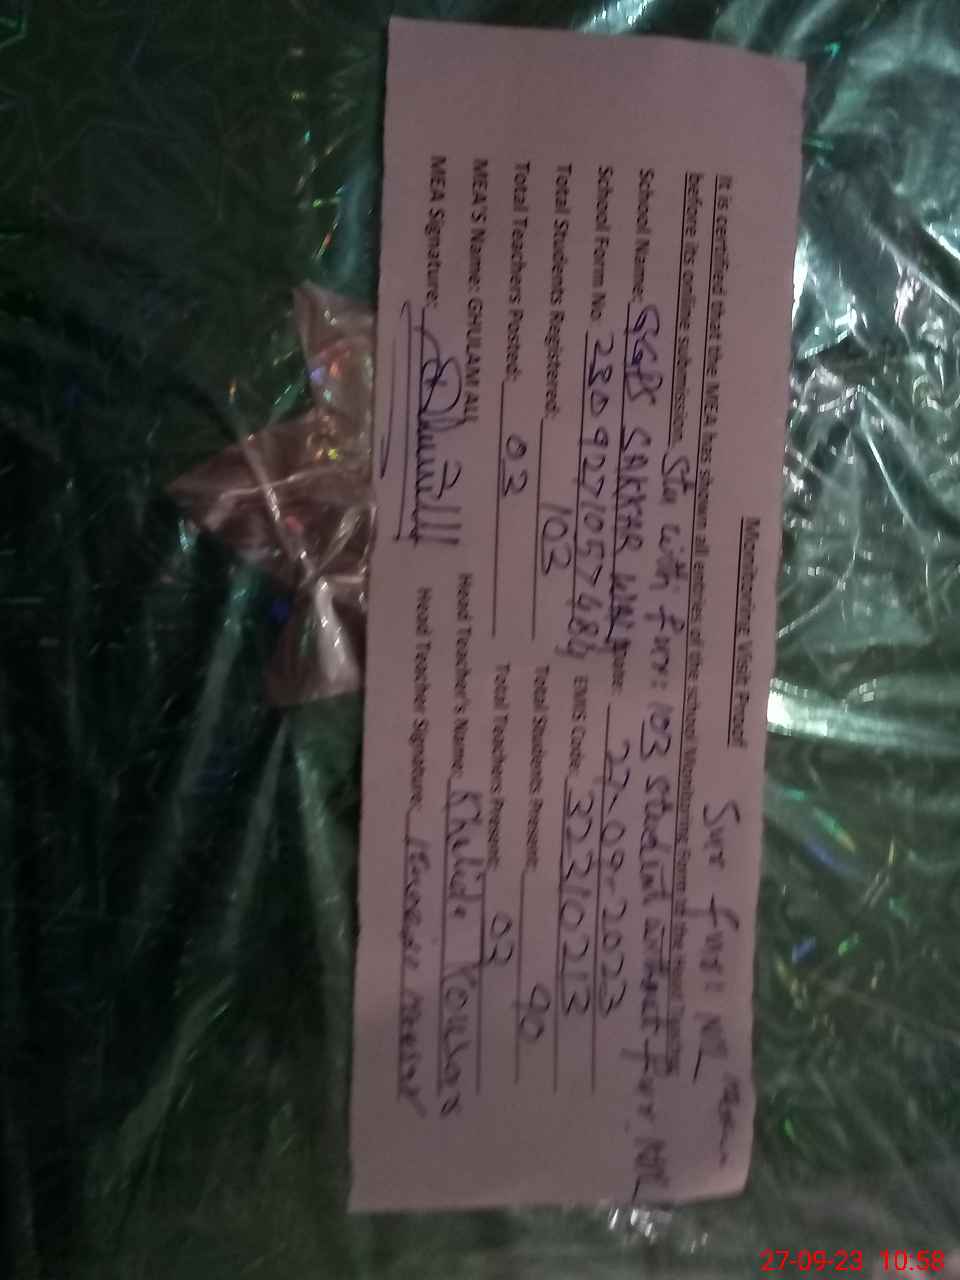 Monitoring Visit Proof
Surr furr: NIL
It is certified that the MEA has shown all entries of the school Monitoring Form to the Head Teacher
before its online submission. Stu with furr: 103 student without furr: NIL
School Name: GGPS SAKKAR WALA Date: 27-09-2023
School Form No. 2309271057484 EMIS Code: 32210213
Total Students Registered: 103 Total Students Present: 90
Total Teachers Posted: 03 Total Teachers Present: 03
MEA'S Name: GHULAM ALI Head Teacher's Name: Khalida Kousar
MEA Signature: Head Teacher Signature:
27-09-23 10:58